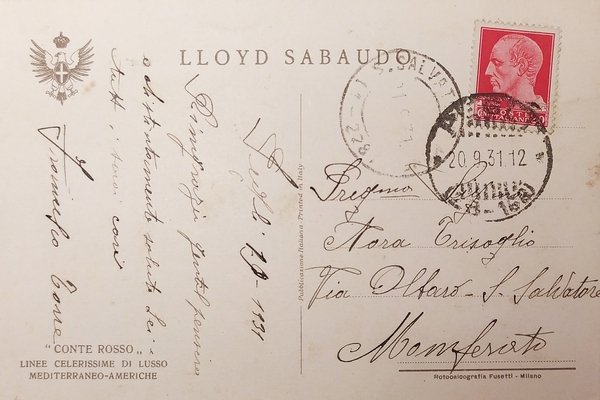 LLOYD SABAUDO
Ringrazio
e distintamente saluto Lei
tutti i suoi cari
"CONTE ROSSO"
LINEE CELERISSIME DI LUSSO
MEDITERRANEO-AMERICHE
Pubblicazione Italiana - Printed in Italy
S. SALVAT
POSTE
ITALIANE
20.9.31.12
Nora Trisoglio
Via Ollaro - S. Salvatore
Monferrato
Rotocalcografia Fusetti - Milano